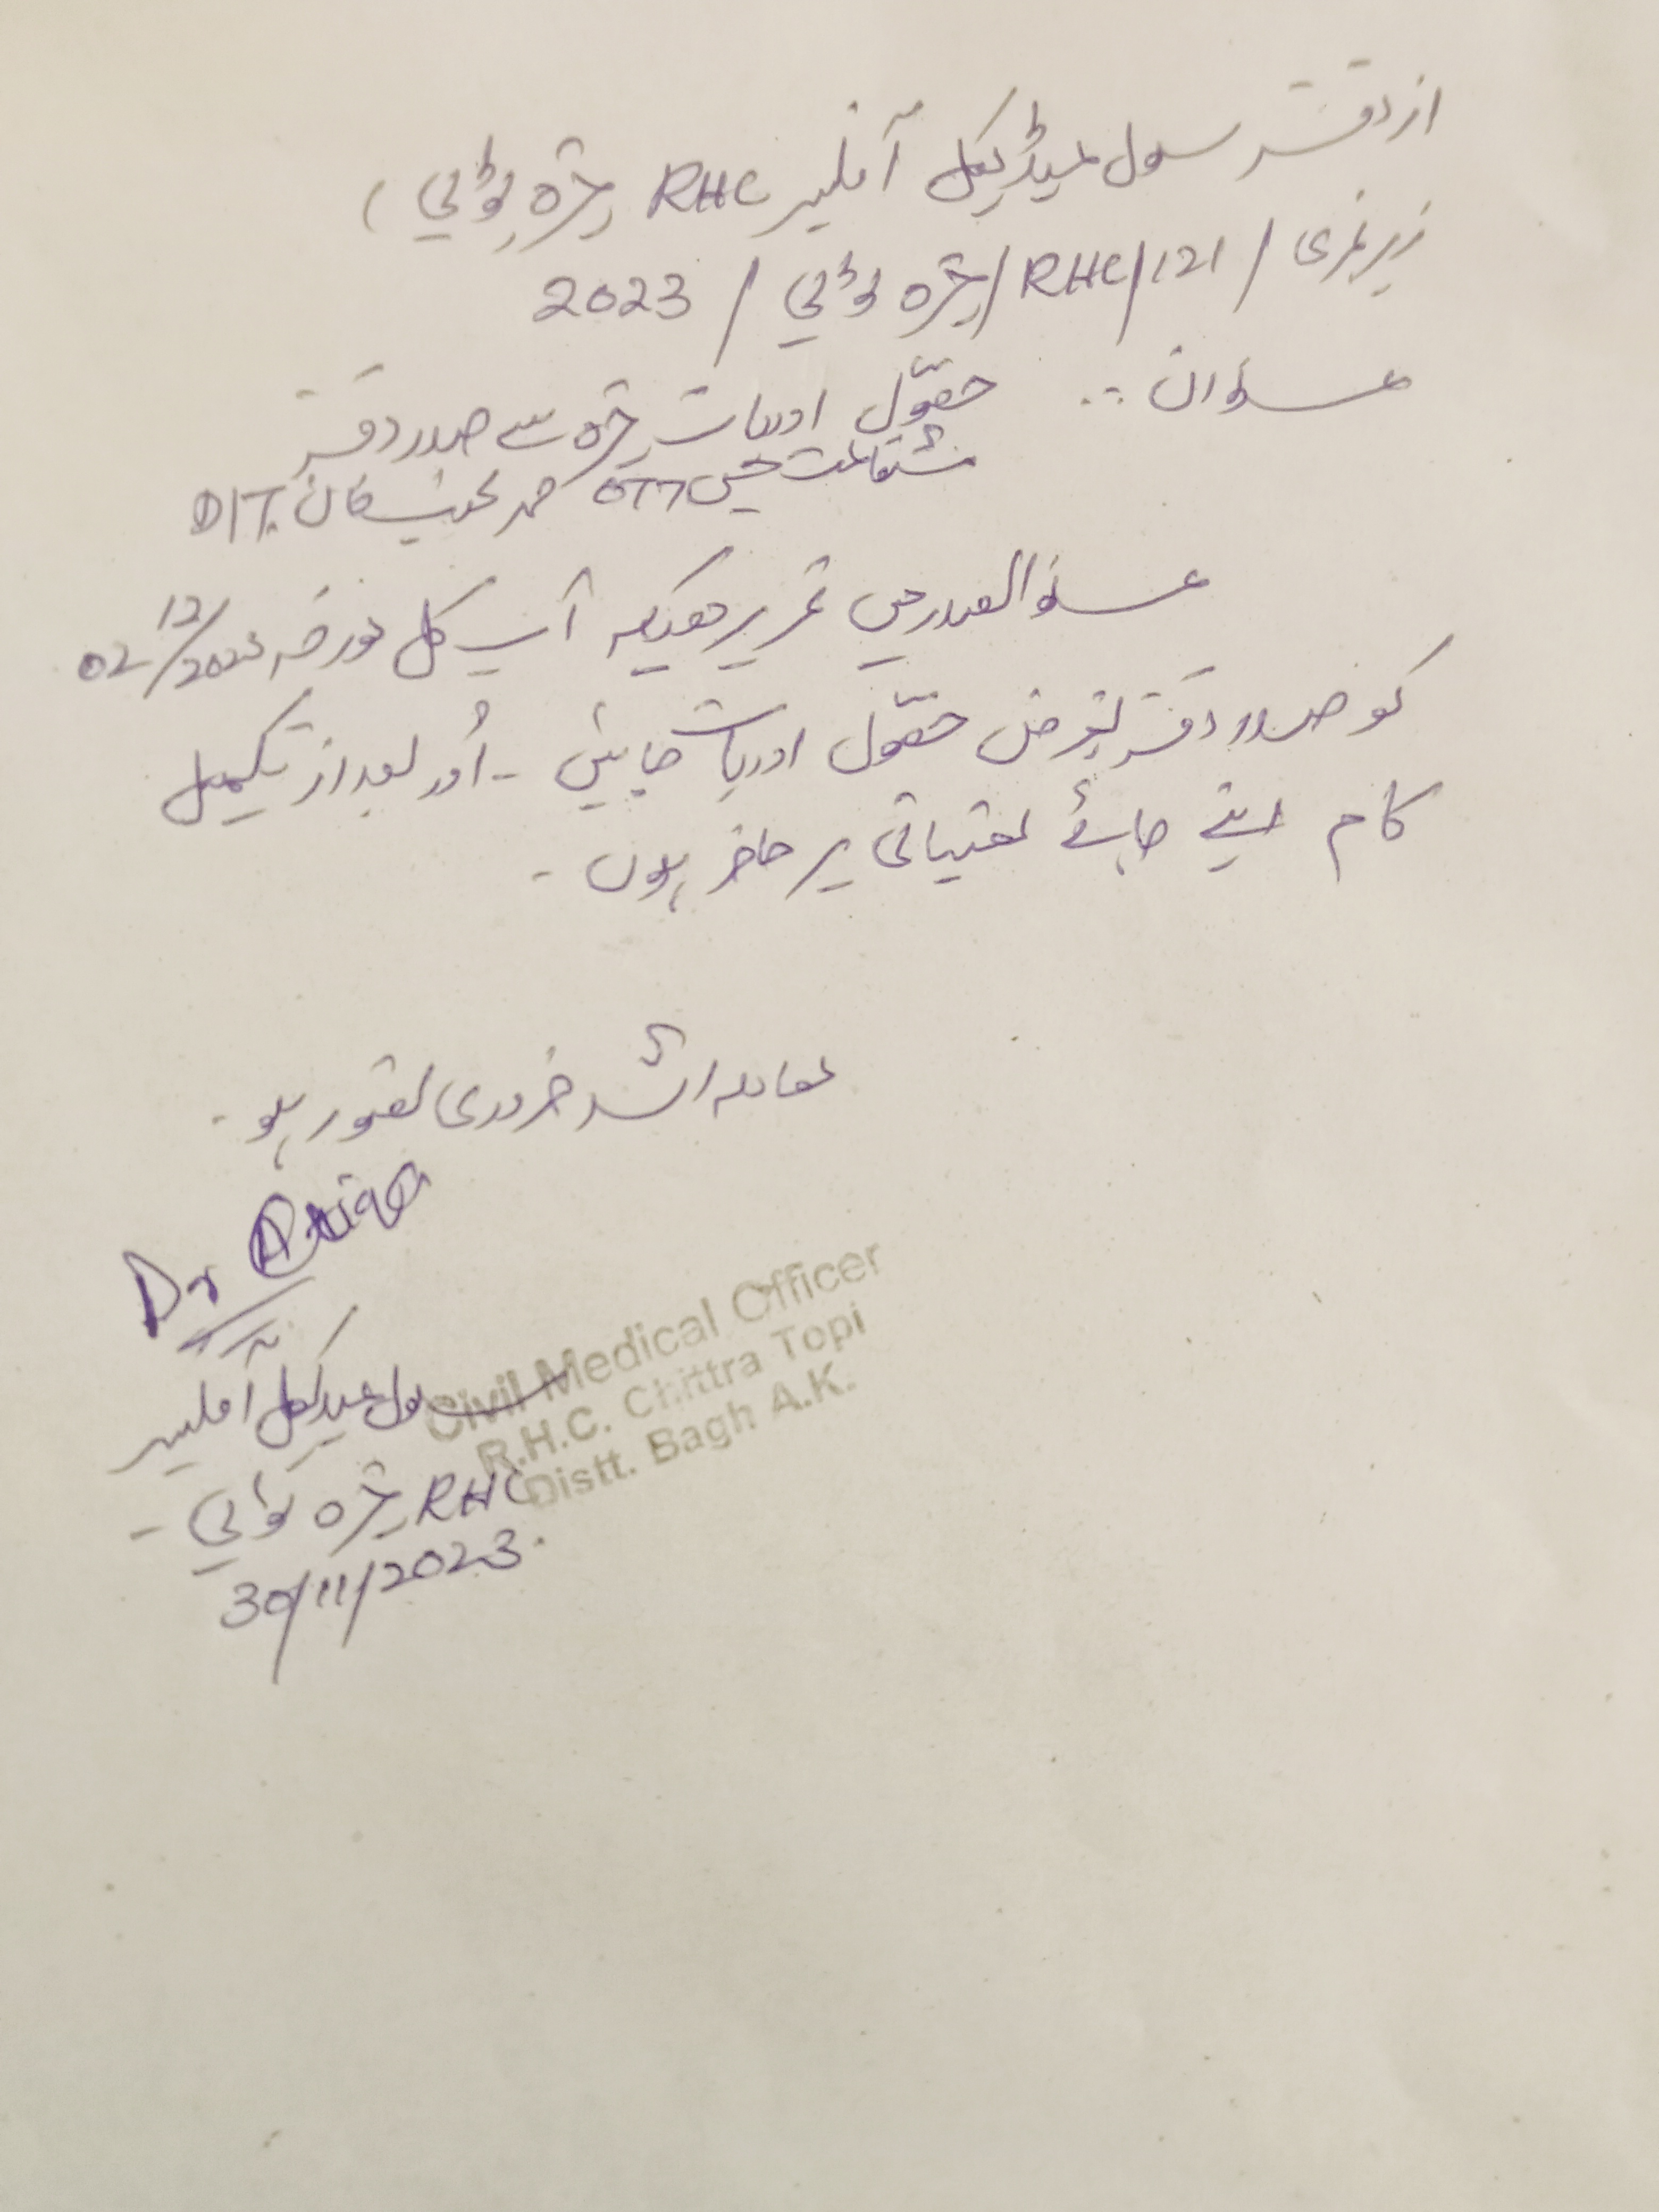 از دفتر سول میڈیکل آفیسر RHC چترہ ٹوپی
زیر نمبری / RHC/121 / چترہ ٹوپی / 2023
عنوان :. حصول ادویات چترہ سے صدر دفتر
شفاعت حسین OTT محمد خان DIT.
عنوان الصدر میں تحریر هیکہ آپ کل مورخہ 02/12/2023
کو صدر دفتر بغرض حصول ادویات جائیں ۔ اُور بعد از تکمیل
کام اپنے جائے تعیناتی پر حاضر ہوں ۔
معاملہ اشد ضروری تصور ہو ۔
Dr Atiqa
سول میڈیکل آفیسر
RHC چترہ ٹوپی ۔
30/11/2023.
Civil Medical Officer
R.H.C. Chittra Topi
Distt. Bagh A.K.